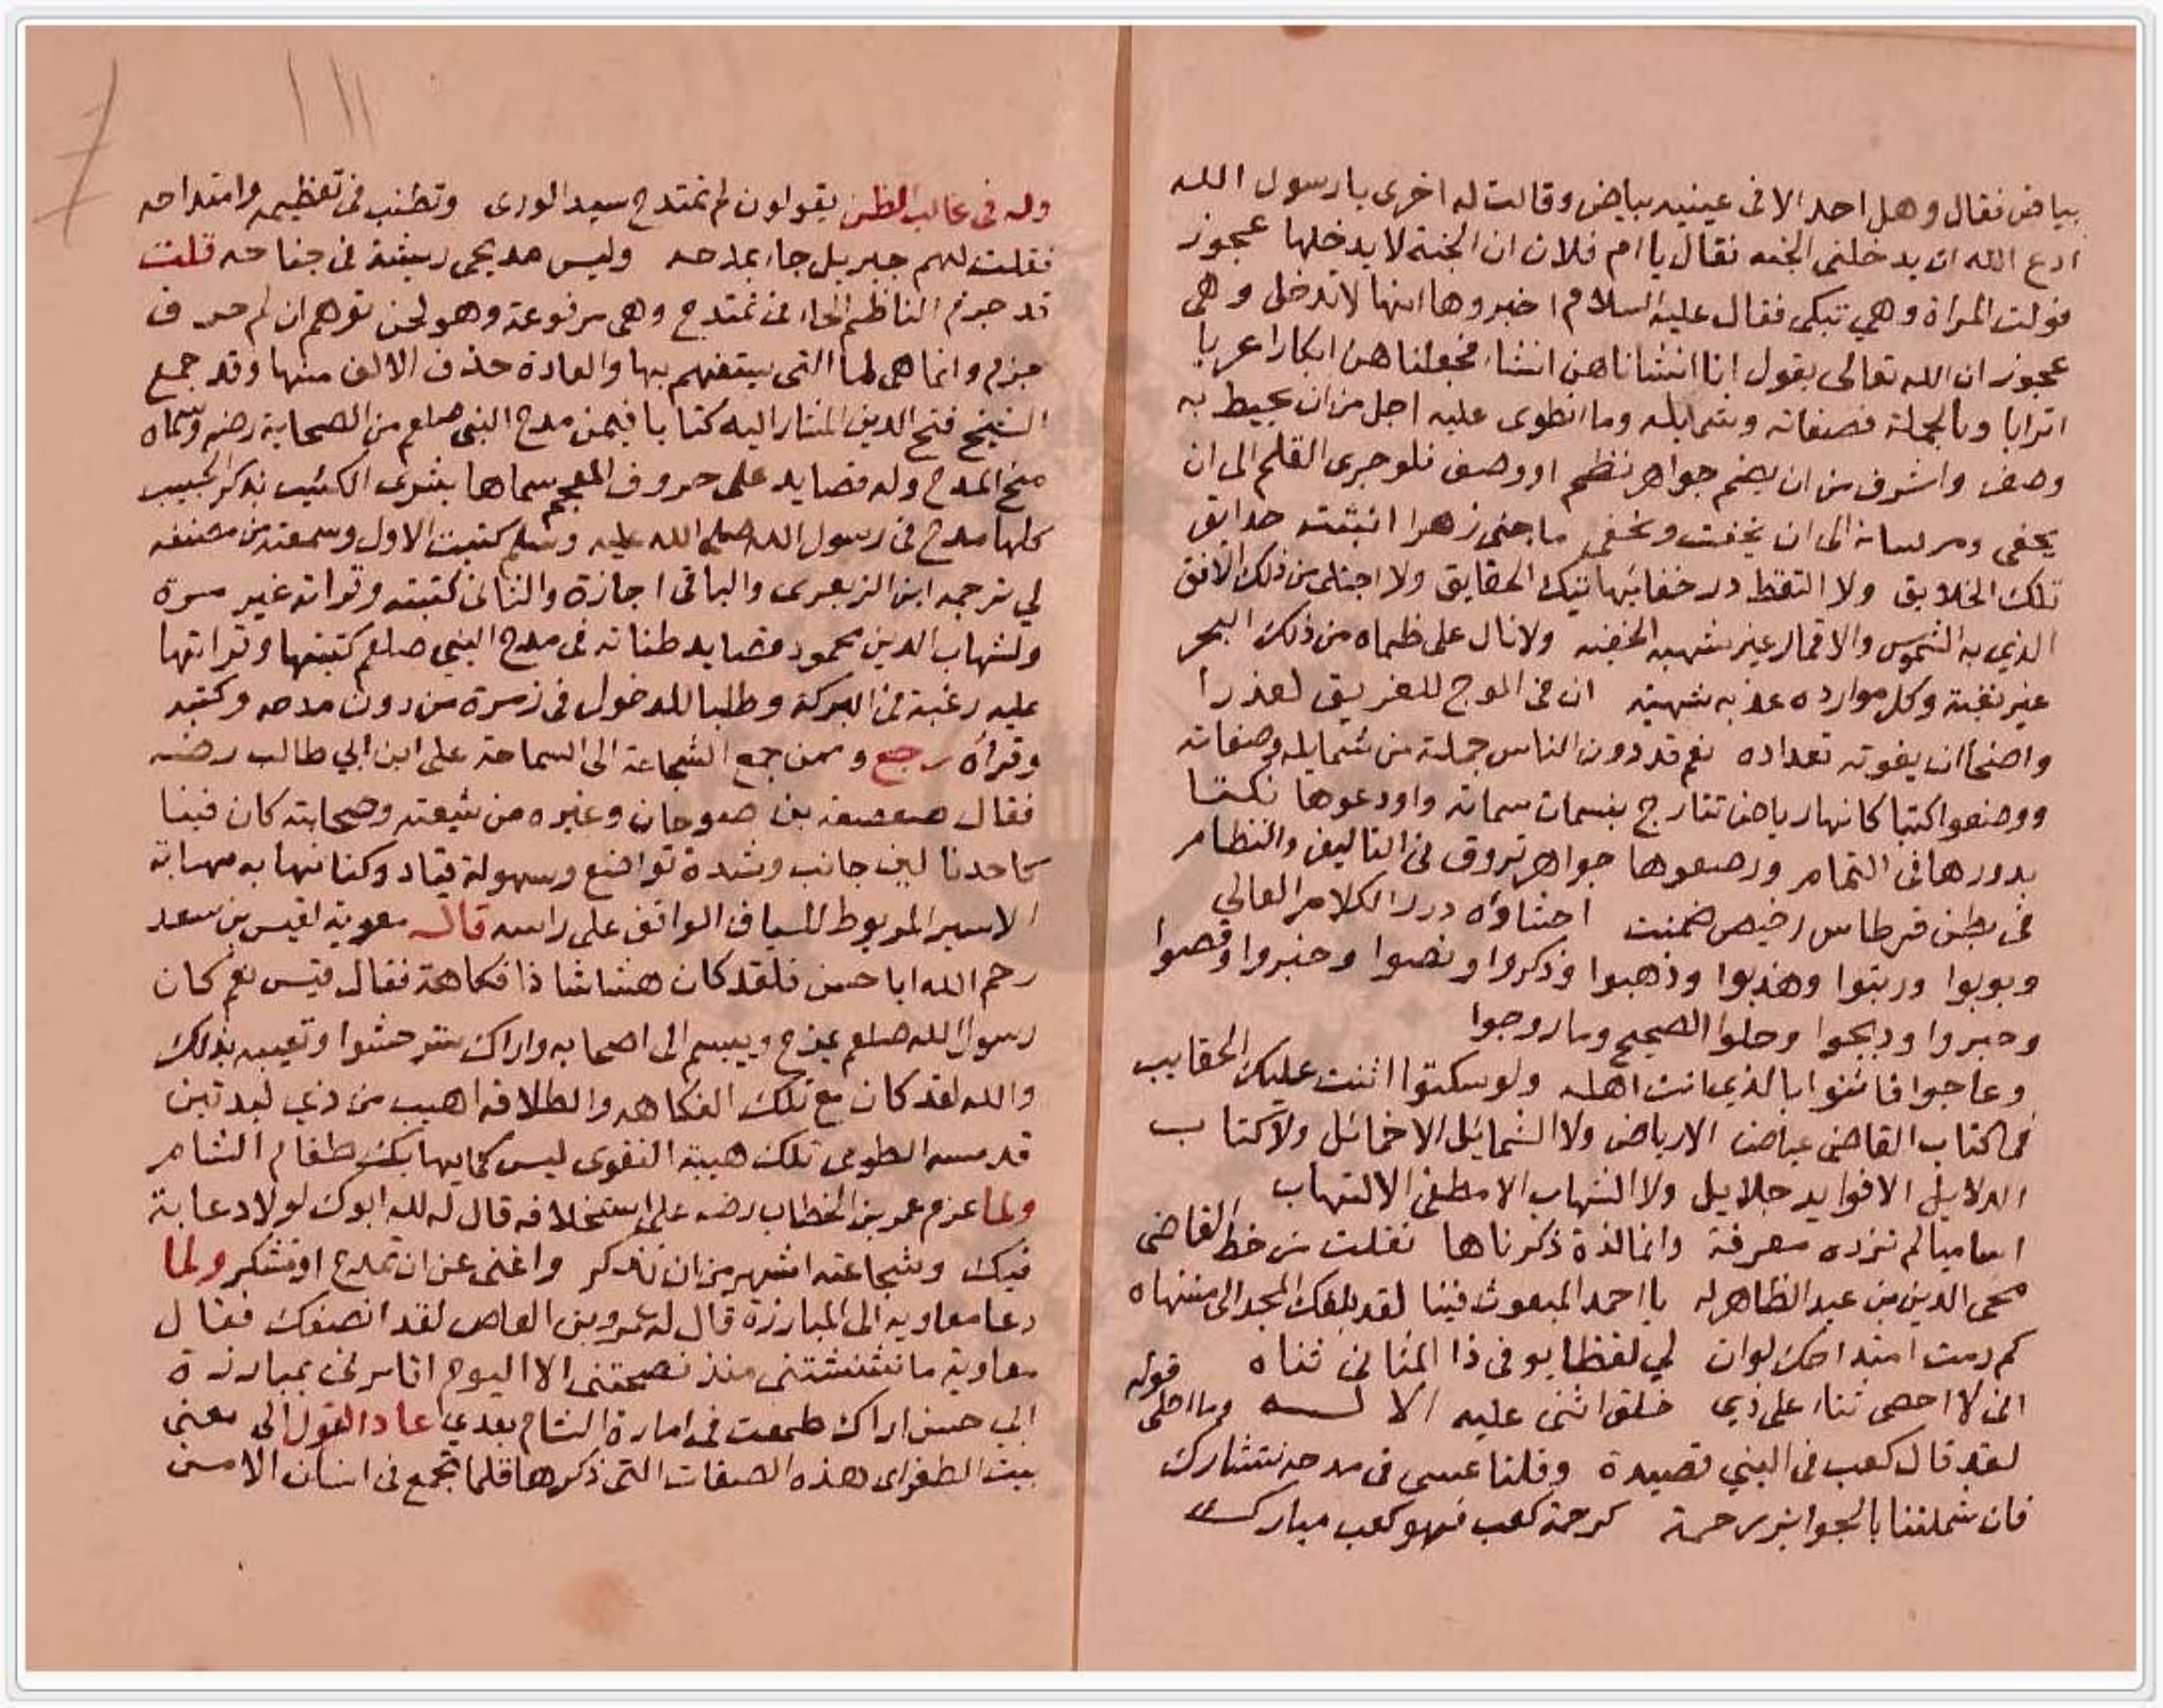 بياض فقال وهل احد الا فى عينيه بياض وقالت له اخرى يا رسول الله
ادع الله ان يدخلنى الجنه فقال يا ام فلان ان الجنة لا يدخلها عجوز
فولت المراة وهي تبكى فقال عليه السلام اخبروها انها لا تدخل وهى
عجوز ان الله تعالى يقول انا انشاناهن انشاء فجعلناهن ابكارا عربا
اترابا وبالجملة فصفاته وشمايله وما انطوى عليه اجل من ان يحيط به
وصف واشرف من ان يضم جواهر نظم او وصف فلو جرى القلم الى ان
يحفى ومر لسانه الى ان يخفت ويخفى ما جنى زهرا انبتته حدايق
تلك الخلايق ولا التقط درر خفائيها تيك الحقايق ولا اجتلى من ذلك الافق
الذي به الشموس والاقمار غير شهبه الخفيه ولا نال على ظماه من ذلك البحر
غير نغبة وكل موارده عذبه شهية ان فى الموج للغريق لعذرا
واضحا ان يفوته تعداده نعم قد دون الناس جملة من شمايله وصفاته
ووضعوا كتبا كانها رياض تتارج بنسمات سماته واودعوها نكتا
بدورها فى التمام ورصعوها جواهر تروق فى التاليف والنظام
فى بطن قرطاس رخيص ضمنت احشاؤه درر الكلام الغالي
وبوبوا ورتبوا وهذبوا وذهبوا وذكروا ونصوا وخبروا وقصوا
وحبروا ودبجوا وحلوا الصحيح وما روجوا
وعاجوا فاثنوا بالذي انت اهله ولو سكتوا اثنت عليك الحقايب
فما كتاب القاضي عياض الا رياض ولا الشمائل الا خمائل ولا كتاب
الدلايل الا فوايد جلايل ولا الشهاب الا مطفى الالتهاب
اساميا لم تزده معرفة وانما لذة ذكرناها نقلت من خط القاضى
محى الدين بن عبد الظاهر له يا احمد المبعوث فينا لقد بلغك المجد الى منتهاه
كم رمت امتداحك لو ان لي لفظا يوفى ذا المثانى ثناه
انى لا احصى ثناء على ذي خلق اثنى عليه الاله وما احلى قوله
لقد قال كعب فى النبي قصيدة وقلنا عسى فى مدحه نتشارك
فان شملتنا بالجوايز رحمة كرحمة كعب فهو كعب مبارك
وله فى غالب الظن يقولون لم تمتدح سيد الورى وتطنب فى تعظيمه وامتداحه
فقلت لهم جبريل جاء بمدحه وليس مديحى ريشة فى جناحه قلت
قد جزم الناظم الحاء من تمتدح وهى مرفوعة وهو لحن توهم ان لم حرف
جزم وانما هى لما التى يستفهم بها والعادة حذف الالف منها وقد جمع
الشيخ فتح الدين المشار اليه كتابا فيمن مدح النبى صلعم من الصحابة رضهم وسماه
منح المدح وله قصايد على حروف المعجم سماها بشرى الكئيب بذكر الحبيب
كلها مدح فى رسول الله صلى الله عليه وسلم كتبت الاول وسمعته من مصنفه
لي ترجمه ابن الزبعرى والباقى اجازة والثانى كتبته وقراته غير مرة
ولشهاب الدين محمود قصايد طنانه فى مدح النبي صلعم كتبتها وقراتها
عليه رغبة فى البركة وطلبا للدخول فى زمرة من دون مدحه وكتبه
وقراه رجع وممن جمع الشجاعة الى السماحة على ابن ابي طالب رضه
فقال صعصعة بن صوحان وغيره من شيعته وصحابته كان فينا
كاحدنا لين جانب وشدة تواضع وسهولة قياد وكنا نهابه مهابة
الاسير المربوط للسياف الواقف على راسه قال معوية لقيس بن سعد
رحم الله ابا حسن فلقد كان هشاشا ذا فكاهة فقال قيس نعم كان
رسول الله صلعم يمزح ويبسم الى اصحابه واراك ستر حشوا وتعيبه بذلك
والله لقد كان مع تلك الفكاهه والطلاقه اهيب من ذي لبدتين
قد مسه الطوى تلك هيبة التقوى ليس كما يهابك طغام الشام
ولما عزم عمر بن الخطاب رضه على استخلافه قال له لله ابوك لولا دعابة
فيك وشجاعته اشهر من ان تذكر واغنى عن ان تمدح او تشكر ولما
دعا معاويه الى المبارزة قال له عمرو بن العاص لقد انصفك فقال
معاوية ما غششتنى منذ نصحتنى الا اليوم اتامرنى بمبارزة
ابي حسن اراك طمعت فى امارة الشام بعدي عاد القول الى معنى
بيت الطغراى هذه الصفات التى ذكرها قلما تجمع فى انسان الا من